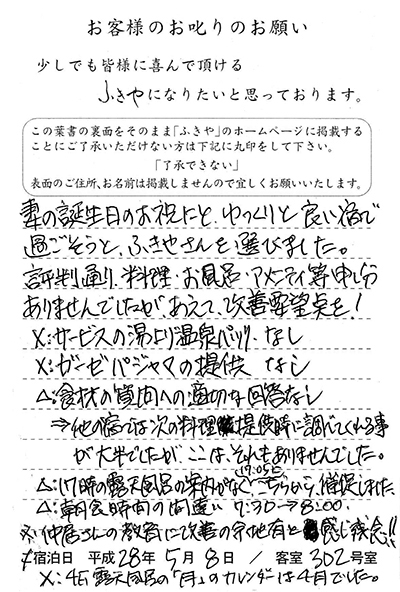 お客様のお叱りのお願い
少しでも皆様に喜んで頂ける
ふきやになりたいと思っております。
この葉書の裏面をそのまま「ふきや」のホームページに掲載する
ことにご了承いただけない方は下記に丸印をして下さい。
「了承できない」
表面のご住所、お名前は掲載しませんので宜しくお願いいたします。
妻の誕生日のお祝にと、ゆっくりと良い宿で
過ごそうと、ふきやさんを選びました。
評判通り、料理・お風呂・アメニティ等申し分
ありませんでしたが、あえて、改善要望点を!
X:サービスの湯より温泉パック なし
X:ガーゼパジャマの提供 なし
△:食材の質問への適切な回答なし
⇒他の宿では次の料理提供時に調べてくれる事
が大半でしたがここは、それもありませんでした。
△:17時の露天風呂の案内がなく、こちらから、催促しました
(17:05に)
△:朝食時間の間違い 7:30→8:00.
※仲居さんの教育に改善の余地有と感じ残念!!
ご宿泊日 平成28年5月8日 / 客室302号室
X:4F露天風呂の「月」のカレンダーは4月でした。